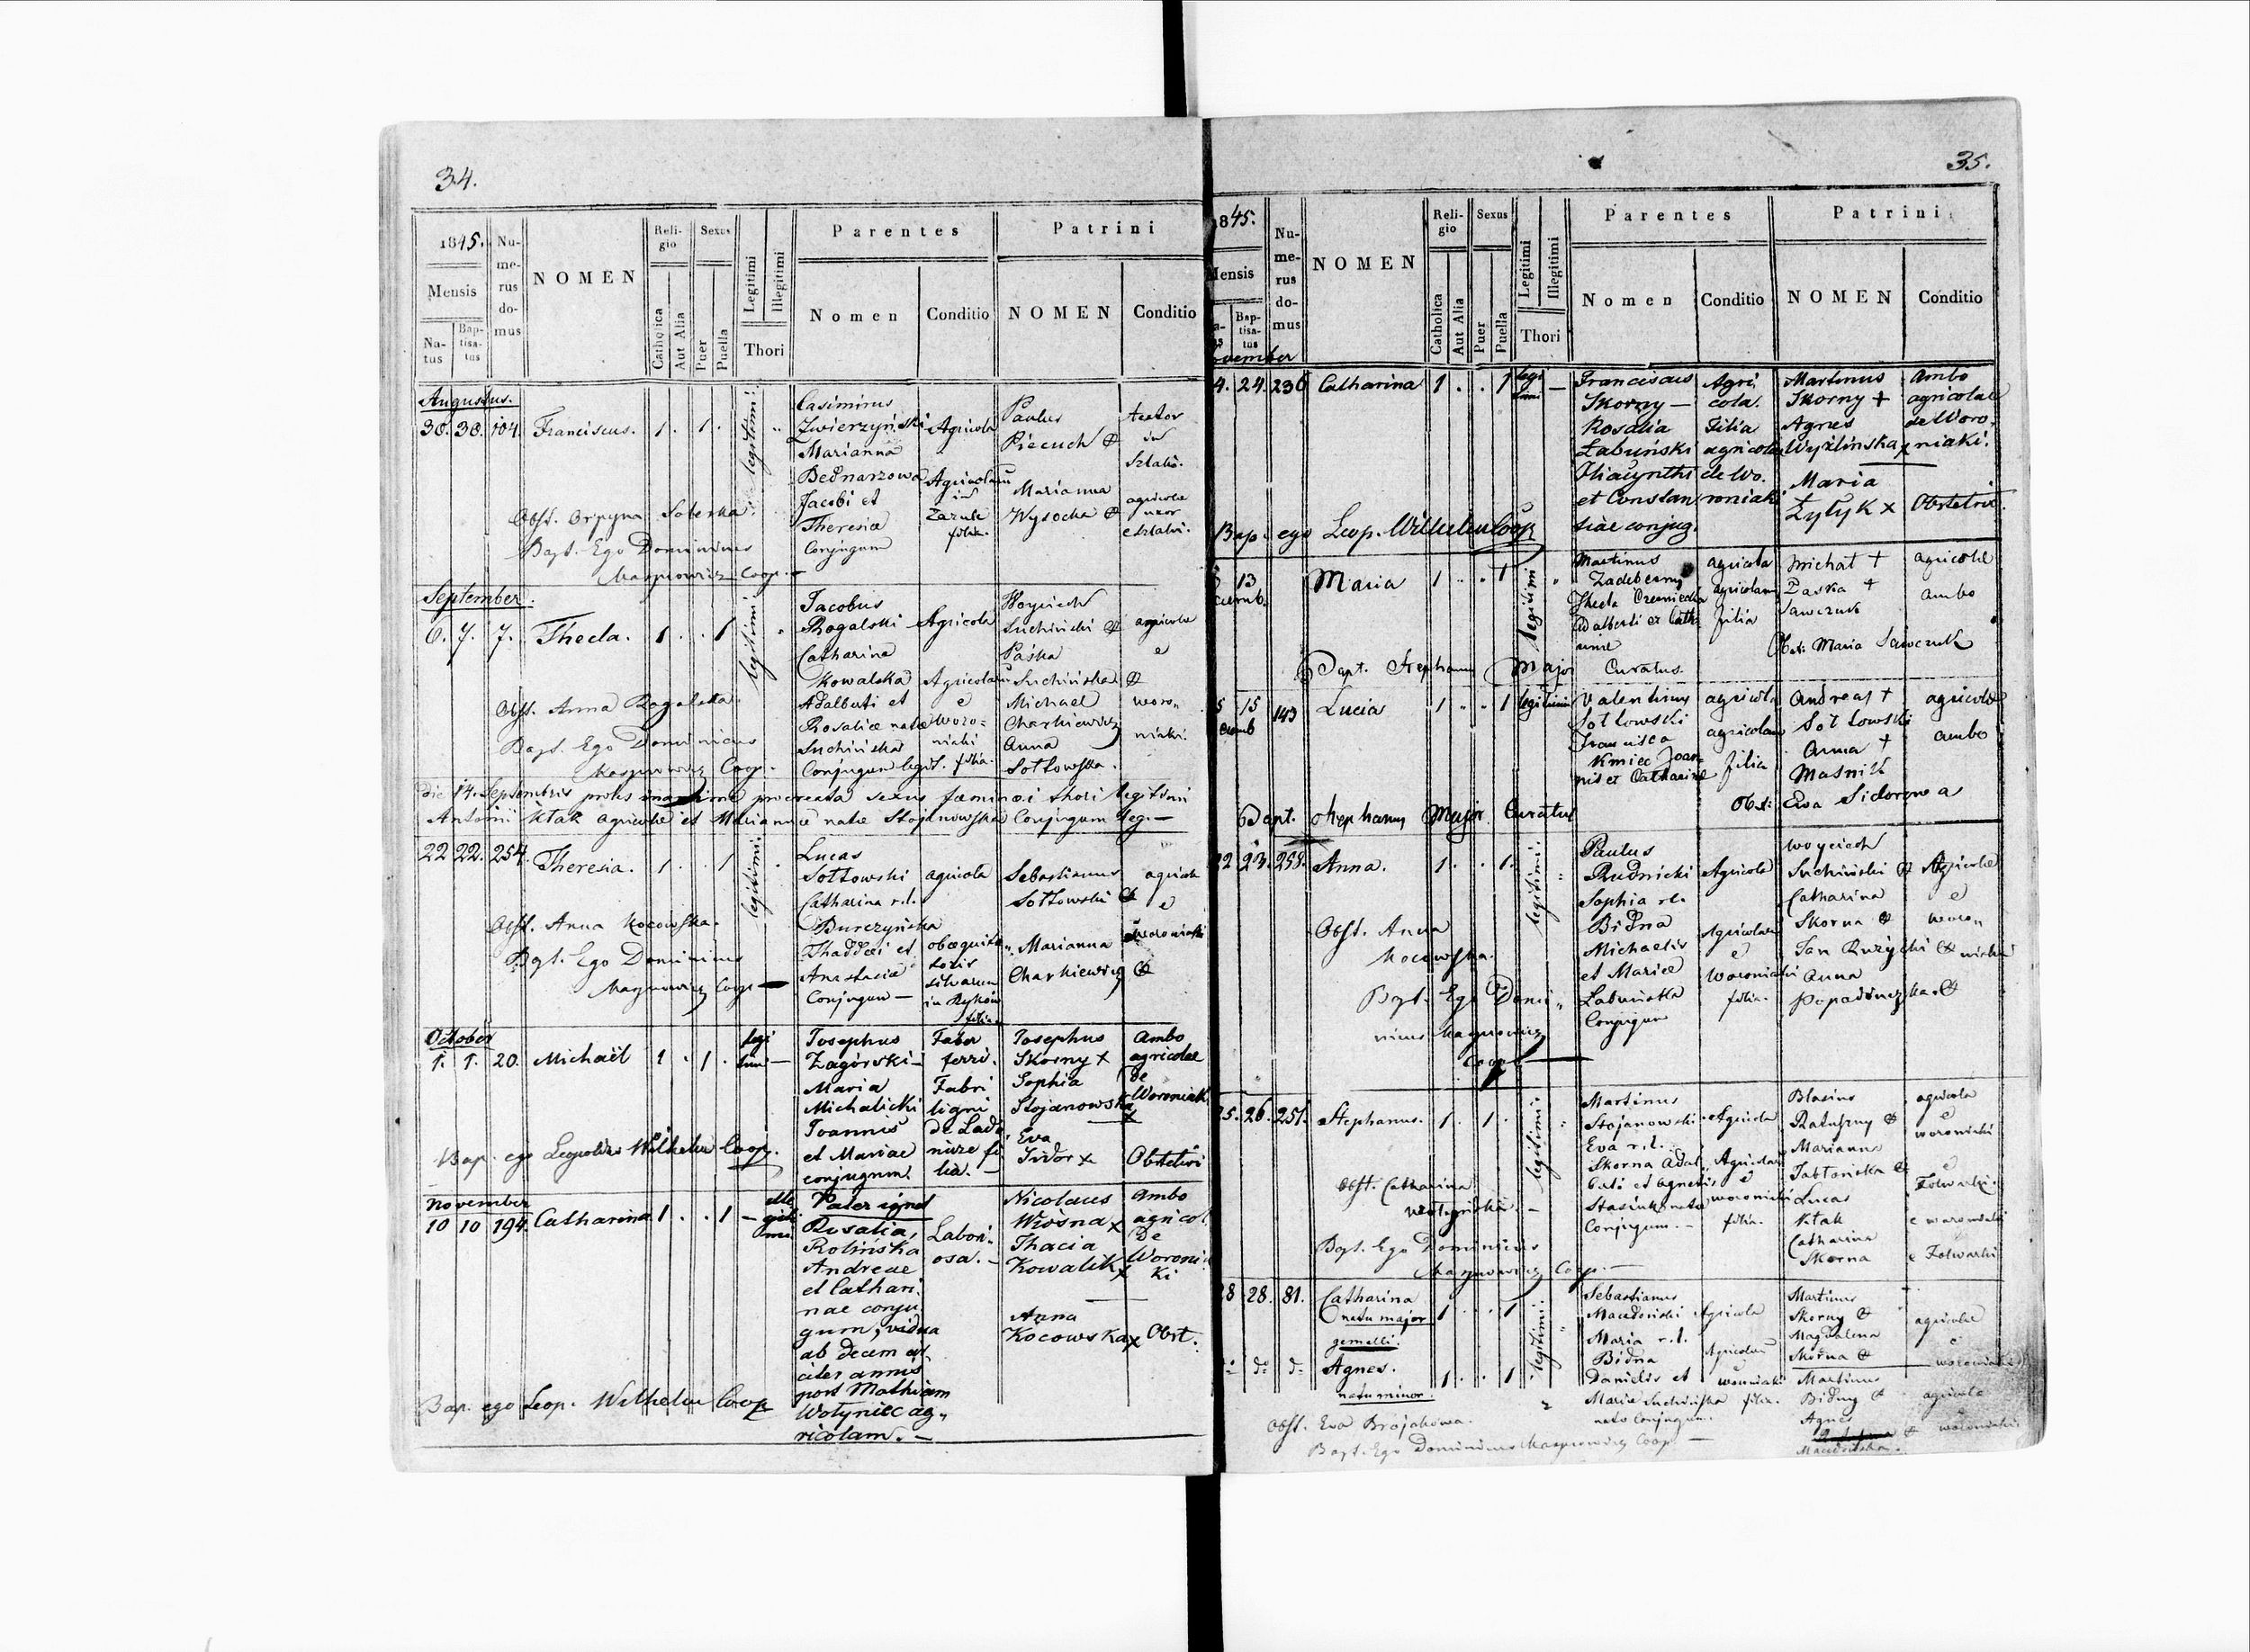 34.
1845.
Mensis
Na-
tus
Bap-
tisa-
tus
Nu-
me-
rus
do-
mus
NOMEN
Reli-
gio
Catholica
Aut Alia
Sexus
Puer
Puella
Legitimi
Illegitimi
Thori
Parentes
Nomen
Conditio
Patrini
NOMEN
Conditio
Augustus.
30. 30. 104. Franciscus. 1. 1. legitimi
Casimirus
Zwierzyński
Marianna
Bednarzowa
Jacobi et
Theresia
Conjugum
Agricola
Agricolarum
in
filia.
Paulus
Piecuch
Marianna
Wysocka
in
agricolae
uxor
Obst. Soterka
Bapt. Ego Dominicus
Coop.
September.
6. 7. 7. Thecla. 1. 1 legitimi
Jacobus
Rogalski
Catharina
Kowalska
Adalberti et
Rosaliae natae
Suchińska
Conjugum legit. filia.
Agricola
Agricolarum
e
Woro-
niaki
Woyciech
Suchiński
Paśka
Suchińska
Michael
Charkiewicz
Anna
Sottowska.
agricolae
e
woro-
niaki.
Obst. Anna Rogalska
Bapt. Ego Dominicus
Coop.
Die 14. Septembris proles procreata sexus faeminei thori legitimi
Antonii Ktak agricolae et Mariannae natae Stojanowska Conjugum leg.
22 22. 254. Theresia. 1. 1 legitimi
Lucas
Sottowski
Catharina r.l.
Burczyńska
Thaddaei et
Anastasia
Conjugum
agricola
silvarum
filia.
Sebastianus
Sottowski
Marianna
Charkiewicz
agricola
e
woroniaki
Obst. Anna Kocowska.
Bapt. Ego Dominicus
Coop
October
1. 1. 20. Michaël 1. 1. legi
timi
Josephus
Zagórski
Maria
Michalicki
Joannis
et Mariae
conjugum.
Faber
ferri.
Fabri
ligni
filia.
Josephus
Skorny x
Sophia
Stojanowska
x
Eva
Sidor x
Ambo
agricolae
de
Woroniak.
Obstetri
Bap. ego Leopoldus Wilhelm Coop.
November
10 10 194. Catharina 1. 1 illegiti
mi
Pater ignot
Rosalia,
Rolińska
Andreae
et Cathari
nae conju
gum, vidua
ab decem
citer annis
post Mathiam
Wotyniec ag
ricolam.
Labori
osa.
Nicolaus
Wiosna x
Thacia
Kowalik x
Anna
Kocowska x Obst.
Ambo
agricol.
De
Woronia
ki
Bap. ego Leop. Wilhelm Coop
35.
1845.
Mensis
Bap-
tisa-
tus
Nu-
me-
rus
do-
mus
NOMEN
Reli-
gio
Catholica
Aut Alia
Sexus
Puer
Puella
Legitimi
Illegitimi
Thori
Parentes
Nomen
Conditio
Patrini
NOMEN
Conditio
November
4. 24. 236 Catharina 1. 1 legi
timi
Franciscus
Skorny
Rosalia
Łabuński
Hiacynthi
et Constan
tiae conjug.
Agri
cola.
Filia
agricolae
de Wo.
roniaki
Martinus
Skorny +
Agnes
Wyźlińska x
Maria
Żytyk x
Ambo
agricolae
de Woro.
niaki.
Obstetrix.
Bap. ego Leop. Wilhelm Coop
13 Maria 1 1 legitimi
Martinus
Thecla
Adalberti et Cath
agricola
agricolarum
filia
Michał +
Paska +
Sawczuk
agricolae
ambo
Obst. Maria Sawczuk
Bapt. Stephanus Major Curatus
15 143 Lucia 1 1 legitimi
Valentinus
Sottowski
Francisca
Kmiec Joan
nis et Catharinae
agricola
agricolarum
filia
Andreas +
Sottowski
Anna +
Masnik
agricolae
ambo
Obst. Eva Sidorowa
Bapt. Stephanus Major Curatus
22 23. 255. Anna. 1. 1. legitimi
Paulus
Rudnicki
Sophia r.l.
Bidna
Michaelis
et Mariae
Labuńska
Conjugum
Agricola
Agricolarum
e
Woroniaki
filia.
Woyciech
Suchiński
Catharina
Skorna
Jan Ruzycki
Anna
Agricolae
e
woro-
niaki
Obst. Anna
Kocowska.
Bapt. Ego Domi
nicus
Coop
25. 26. 251. Stephanus. 1. 1. legitimi
Martinus
Stojanowski
Eva r.l.
Skorna Adal
berti et Agnetis
Stasiuk nata
Conjugum.
Agricola
Agricolarum
e
woroniaki
filia.
Blasius
Ratuszny
Marianna
Jabłońska
Lucas
Ktak
Catharina
Skorna
agricola
e
woroniaki
e
Folwarki.
e woroniaki
e Folwarki
Obst. Catharina
Bapt. Ego Dominicus
Coop.
28 28. 81. Catharina
natu major
gemelli.
1 1 legitimi
Agnes.
natu minor.
1. 1
Sebastianus
Macedoński
Maria r.l.
Bidna
Danielis et
Maria Suchińska filia.
nata Conjugum.
Agricola
Agricolarum
e
woroniaki
Martinus
Skorny
Magdalena
Skorna
Martinus
Bidny
Agnes
Macedońska.
agricolae
e
woroniaki
agricolae
e woroniaki
Obst. Eva Brojakowa.
Bapt. Ego Dominicus Coop